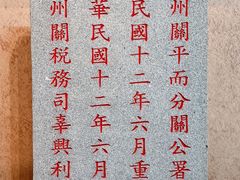 州關平而分關公署
民國十二年六月重
華民國十二年六月
州關税務司辜興利